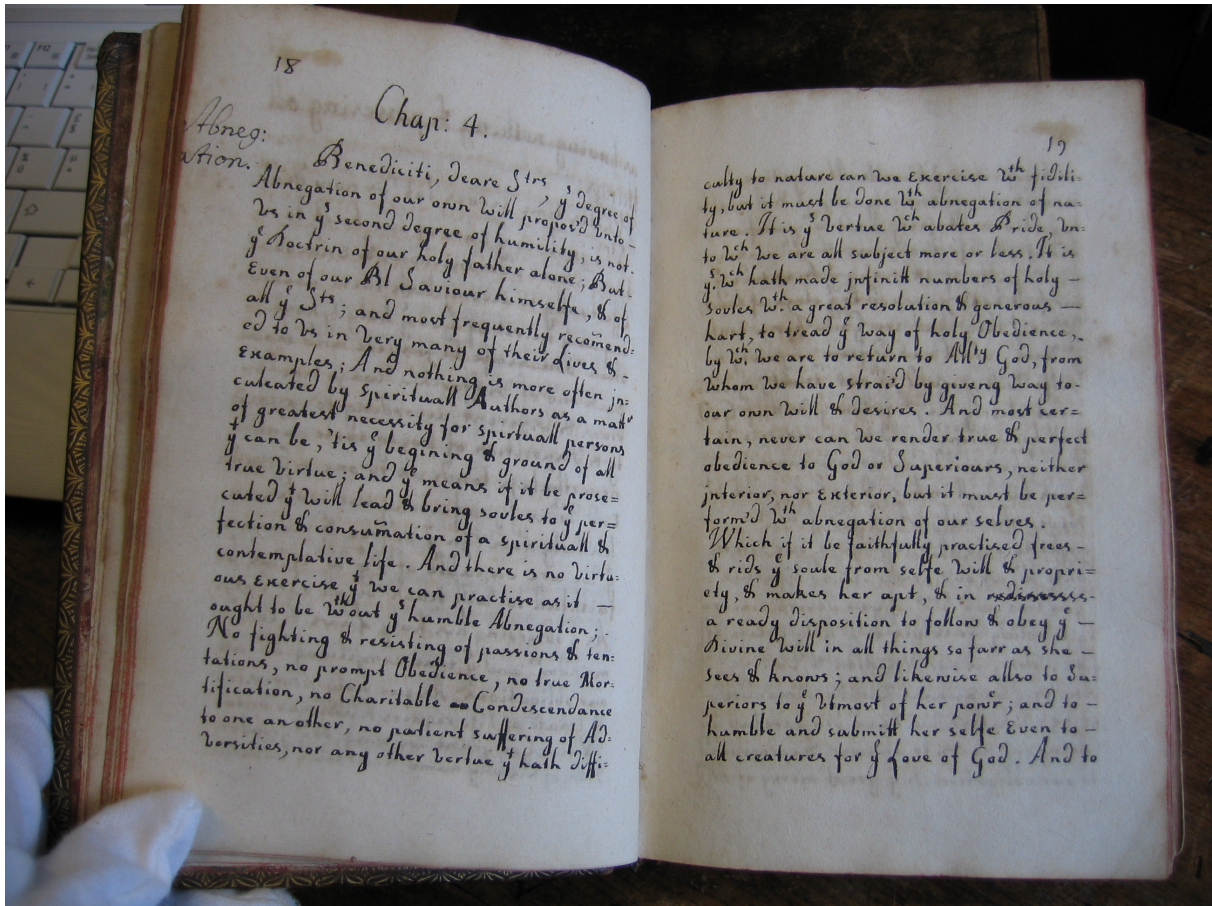 18
Chap: 4.
Abneg:
ation.
Benediciti, deare Strs, yᵉ degree of
Abnegation of our own will propos'd vnto -
Vs in yᵉ second degree of humility, is not.
yᵉ Doctrin of our holy father alone; But -
Even of our Bl Saviour himselfe, & of
all yᵉ Sts; and most frequently recom̃end=
ed to Vs in Very many of their Lives & -
Examples; And nothing is more often jn=
culcated by spirituall Authors as a mattʳ
of greatest necessity for spirtuall persons
yᵗ can be, 'tis yᵉ begining & ground of all
true Virtue; and yᵉ means if it be prose=
cuted yᵗ will lead & bring soules to yᵉ per=
fection & consum̃ation of a spirituall &
contemplative life. And there is no Virtu=
ous Exercise yᵗ we can practise as it —
ought to be Wᵗʰout yˢ humble Abnegation;
No fighting & resisting of passions & ten=
tations, no prompt Obedience, no true Mor=
tification, no Charitable Condescendance
to one an other, no patient suffering of Ad=
Versities, nor any other Vertue yᵗ hath diffi=
19
culty to nature can we Exercise Wᵗʰ fidili=
ty, but it must be done Wᵗʰ abnegation of na=
ture. It is yᵉ Vertue Wᶜʰ abates Pride, Vn=
to Wᶜʰ we are all subject more or less. It is
yˢ Wᶜʰ hath made jnfinitt numbers of holy -
soules Wᵗʰ. a great resolution & generous —
hart, to tread yᵉ way of holy Obedience,
by Wᶜʰ. we are to return to Allᵗʸ God, from
whom we have strai'd by giveng way to -
our own will & desires. And most cer=
tain, never can we render true & perfect
obedience to God or Superiours, neither
jnterior, nor Exterior, but it must be per=
form'd Wᵗʰ abnegation of our selves.
Which if it be faithfully practised frees -
& rids yᵉ soule from selfe will & propri=
ety, & makes her apt, & in
a ready disposition to follow & obey yᵉ -
Divine Will in all things so farr as she -
sees & knows; and likewise allso to Su=
periors to yᵉ Vtmost of her powʳ; and to -
humble and submitt her selfe Even to -
all creatures for yᵉ Love of God. And to